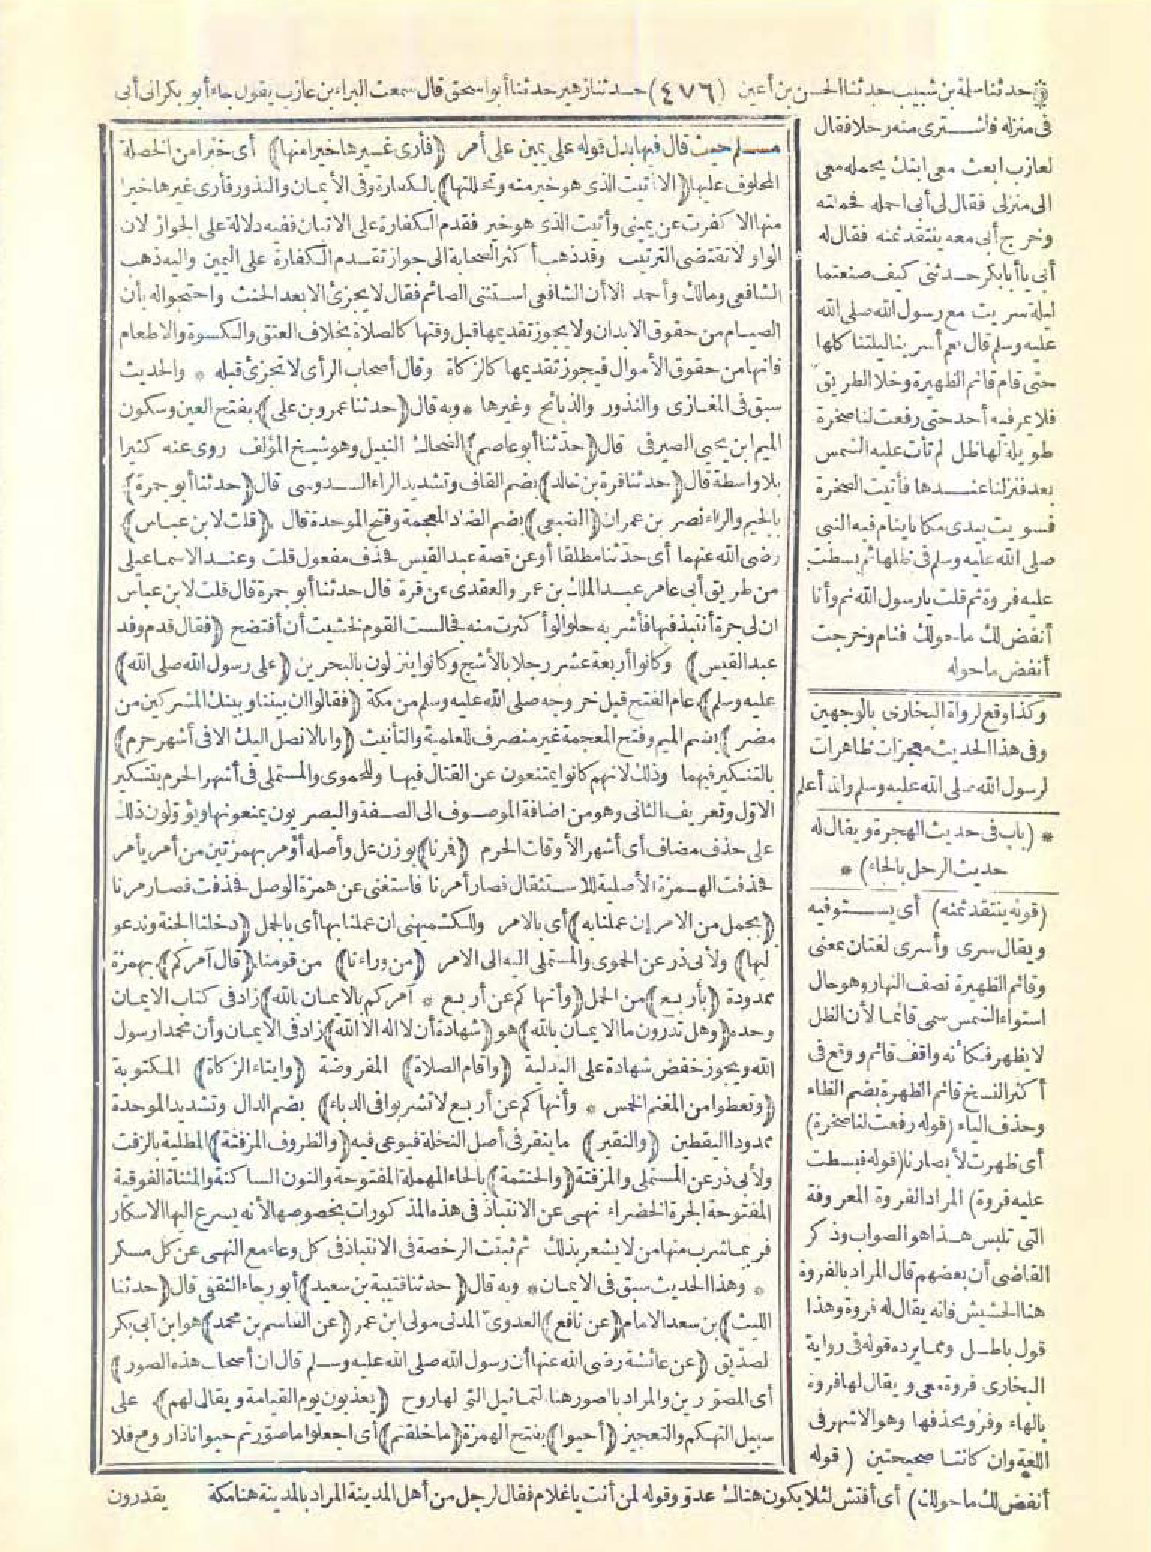 حدثنا سلمة بن شبيب حدثنا الحسن بن أعين (٤٧٦) حدثنا زهير حدثنا أبو اسحق قال سمعت البراء بن عازب يقول جاء أبو بكر الى أبى
فى منزله فاشترى منه رحلا فقال
لعازب ابعث معى ابنك يحمله معى
الى منزلى فقال لى أبى احمله فحملته
وخرج أبى معه ينتقد ثمنه فقال له
أبى يا أبا بكر حدثنى كيف صنعتما
ليلة سريت مع رسول الله صلى الله
عليه وسلم قال نعم أسرينا ليلتنا كلها
حتى قام قائم الظهيرة وخلا الطريق
فلا يمر فيه أحد حتى رفعت لنا صخرة
طويلة لها ظل لم تأت عليه الشمس
بعد فنزلنا عندها فأتيت الصخرة
فسويت بيدى مكانا ينام فيه النبى
صلى الله عليه وسلم فى ظلها ثم بسطت
عليه فروة ثم قلت يا رسول الله نم وأنا
أنفض لك ما حولك فنام وخرجت
أنفض ما حوله
وكذا وقع لرواة البخارى بالوجهين
وفى هذا الحديث معجزات ظاهرات
لرسول الله صلى الله عليه وسلم والله أعلم
* (باب فى حديث الهجرة ويقال له
حديث الرحل بالحاء) *
(قوله ينتقد ثمنه) أى يستوفيه
ويقال سرى وأسرى لغتان بمعنى
وقائم الظهيرة نصف النهار وهو حال
استواء الشمس سمى قائما لأن الظل
لا يظهر فكأنه واقف قائم ووقع فى
أكثر النسخ قائم الظهرة بضم الظاء
وحذف الياء (قوله رفعت لنا صخرة)
أى ظهرت لأبصارنا (قوله فبسطت
عليه فروة) المراد الفروة المعروفة
التى تلبس هذا هو الصواب وذكر
القاضى أن بعضهم قال المراد بالفروة
هنا الحشيش فانه يقال له فروة وهذا
قول باطل ومما يرده قوله فى رواية
البخارى فروة معى ويقال لها فروة
بالهاء وفرو بحذفها وهو الاشهر فى
اللغة وان كانتا صحيحتين (قوله
مسلم حيث قال فيها بدل قوله على يمين على أمر (فأرى غيرها خيرا منها) أى خيرا من الخصلة
المحلوف عليها (الا أتيت الذى هو خير منه وتحللتها) بالكفارة وفى الأيمان والنذور فأرى غيرها خيرا
منها الا كفرت عن يمينى وأتيت الذى هو خير فقدم الكفارة على الاتيان ففيه دلالة على الجواز لان
الواو لا تقتضى الترتيب وقد ذهب أكثر الصحابة الى جواز تقدم الكفارة على اليمين واليه ذهب
الشافعى ومالك وأحمد الا أن الشافعى استثنى الصائم فقال لا يجزئ الا بعد الحنث واحتجوا له بأن
الصيام من حقوق الابدان ولا يجوز تقديمها قبل وقتها كالصلاة بخلاف العتق والكسوة والاطعام
فانها من حقوق الأموال فيجوز تقديمها كالزكاة وقال أصحاب الرأى لا تجزئ قبله * والحديث
سبق فى المغازى والنذور والذبائح وغيرها * وبه قال (حدثنا عمرو بن على) بفتح العين وسكون
الميم ابن يحيى الصيرفى قال (حدثنا أبو عاصم) الضحاك النبيل وهو شيخ المؤلف روى عنه كثيرا
بلا واسطة قال (حدثنا قرة بن خالد) بضم القاف وتشديد الراء السدوسى قال (حدثنا أبو جمرة)
بالجيم والراء نصر بن عمران (الضبعى) بضم الضاد المعجمة وفتح الموحدة قال (قلت لابن عباس)
رضى الله عنهما أى حدثنا مطلقا أو عن قصة عبد القيس فحذف مفعول قلت وعند الاسماعيلى
من طريق أبى عامر عبد الملك بن عمرو العقدى عن قرة قال حدثنا أبو جمرة قال قلت لابن عباس
ان لى جرة أنتبذ فيها فأشربه حلوا لو أكثرت منه فجالست القوم لخشيت أن أفتضح (فقال قدم وفد
عبد القيس) وكانوا أربعة عشر رجلا بالأشج وكانوا ينزلون بالبحرين (على رسول الله صلى الله)
عليه وسلم) عام الفتح قبل خروجه صلى الله عليه وسلم من مكة (فقالوا ان بيننا وبينك المشركين من
مضر) بضم الميم وفتح المعجمة غير منصرف للعلمية والتأنيث (وانا لا نصل اليك الا فى أشهر حرم)
بالتنكير فيهما وذلك لانهم كانوا يمتنعون عن القتال فيها وللحموى والمستملى فى أشهر الحرم بتنكير
الاول وتعريف الثانى وهو من اضافة الموصوف الى الصفة والبصريون يمنعونها ويؤولون ذلك
على حذف مضاف أى أشهر الأوقات الحرم (فمرنا) بوزن عل وأصله أؤمر بهمزتين من أمر يأمر
فحذفت الهمزة الأصلية للاستثقال فصار أمرنا فاستغنى عن همزة الوصل فحذفت فصار مرنا
(بجمل من الامر إن عملنا به) أى بالامر وللكشميهنى ان عملنا بها أى بالجمل (دخلنا الجنة وندعو
اليها) ولأبى ذر عن الحموى والمستملى اليه الى الامر (من وراءنا) من قومنا (قال آمركم) بهمزة
ممدودة (بأربع) من الجمل (وأنهاكم عن أربع * آمركم بالايمان بالله) زاد فى كتاب الايمان
وحده (وهل تدرون ما الايمان بالله) هو (شهادة أن لا اله الا الله) زاد فى الايمان وأن محمدا رسول
الله ويجوز خفض شهادة على البدلية (واقام الصلاة) المفروضة (وايتاء الزكاة) المكتوبة
(وتعطوا من المغنم الخمس * وأنهاكم عن أربع لا تشربوا فى الدباء) بضم الدال وتشديد الموحدة
ممدودا اليقطين (والنقير) ما ينقر فى أصل النخلة فيوعى فيه (والظروف المزفتة) المطلية بالزفت
ولأبى ذر عن المستملى والمزفتة (والحنتمة) بالحاء المهملة المفتوحة والنون الساكنة والمثناة الفوقية
المفتوحة الجرة الخضراء نهى عن الانتباذ فى هذه المذكورات بخصوصها لأنه يسرع اليها الاسكار
فربما شرب منها من لا يشعر بذلك ثم ثبتت الرخصة فى الانتباذ فى كل وعاء مع النهى عن كل مسكر
* وهذا الحديث سبق فى الايمان * وبه قال (حدثنا قتيبة بن سعيد) أبو رجاء الثقفى قال (حدثنا
الليث) بن سعد الامام (عن نافع) العدوى المدنى مولى ابن عمر (عن القاسم بن محمد) هو ابن أبى بكر
لصديق (عن عائشة رضى الله عنها أن رسول الله صلى الله عليه وسلم قال ان أصحاب هذه الصور)
أى المصورين والمراد بالصور هنا التماثيل التى لها روح (يعذبون يوم القيامة ويقال لهم) على
سبيل التهكم والتعجيز (أحيوا) بفتح الهمزة (ما خلقتم) أى اجعلوا ما صورتم حيوانا ذا روح فلا
أنفض لك ما حولك) أى أفتش لئلا يكون هناك عدو وقوله لمن أنت يا غلام فقال لرجل من أهل المدينة المراد بالمدينة هنا مكة يقدرون